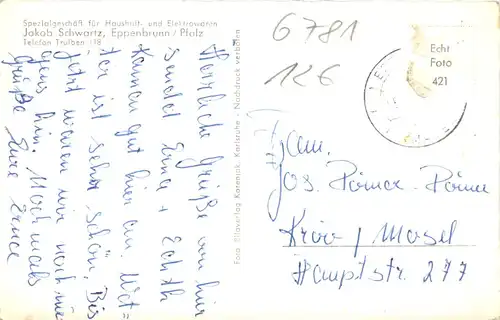 Spezialgeschäft für Haushalt- und Elektrowaren
Jakob Schwartz, Eppenbrunn / Pfalz
Telefon Trulben 118
6781
126
Echt
Foto
421
Herzliche Grüße von hier
sendet Erna + Edith
kamen gut hier an. Wet=
ter ist sehr schön. Bis
jetzt waren wir noch nir
gens hin. Nochmals
Grüße Eure Erna
Foto Bildverlag Karenick, Karlsruhe - Nachdruck verboten
Fam.
Jos. Römer-Römer
Kröv / Mosel
Hauptstr. 277